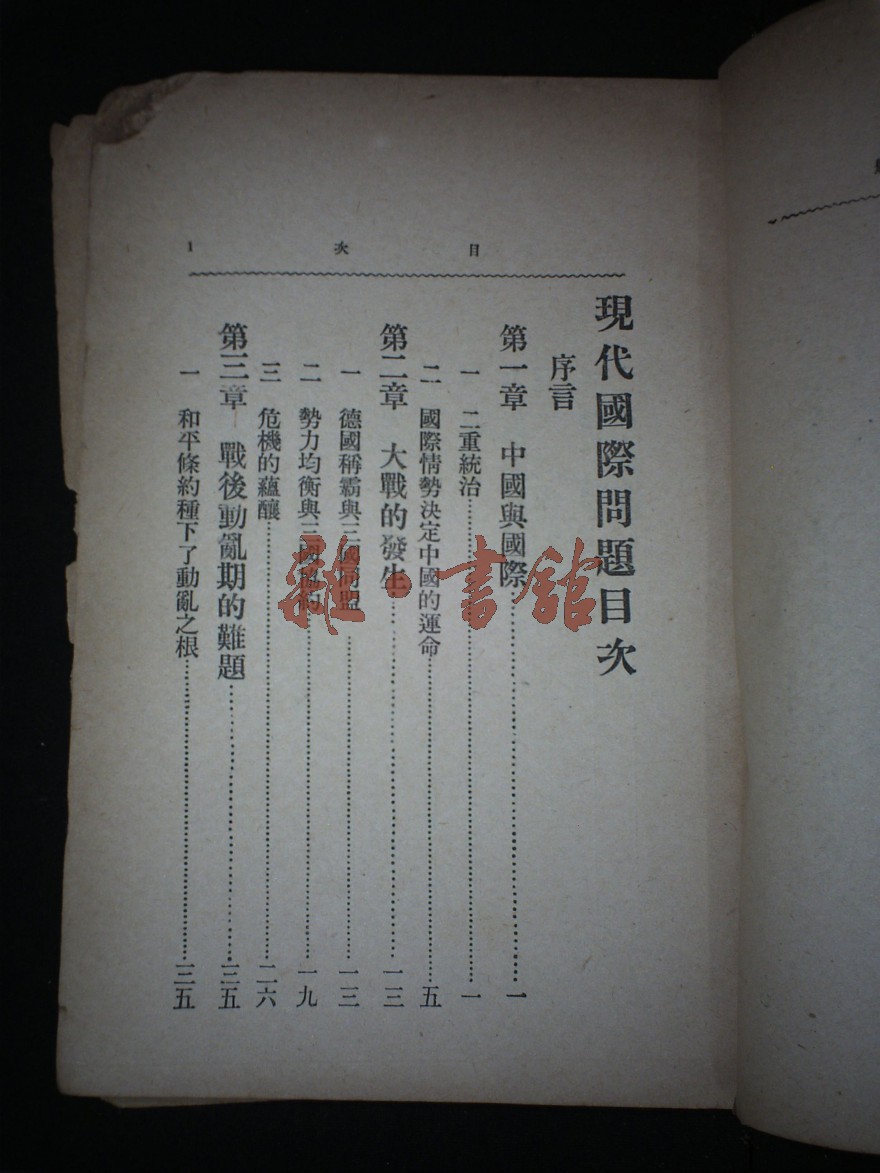 目次 1
現代國際問題目次
序言
第一章 中國與國際……一
一 二重統治……一
二 國際情勢決定中國的運命……五
第二章 大戰的發生……一三
一 德國稱霸與三國同盟……一三
二 勢力均衡與三國協約……一九
三 危機的蘊釀……二六
第三章 戰後動亂期的難題……三五
一 和平條約種下了動亂之根……三五
雜·書館